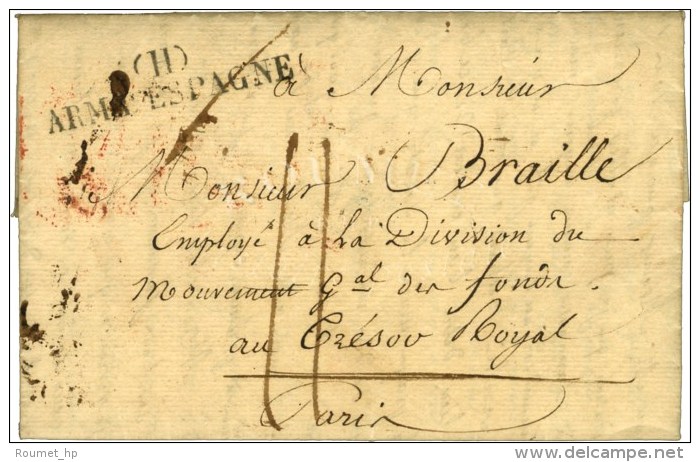 (H)
ARM. ESPAGNE
à Monsieur
Monsieur Braille
Employé à la Division du
Mouvement Gal des fonds.
au Trésor Royal
Paris
11
Roumet_hp
www.delcampe.net